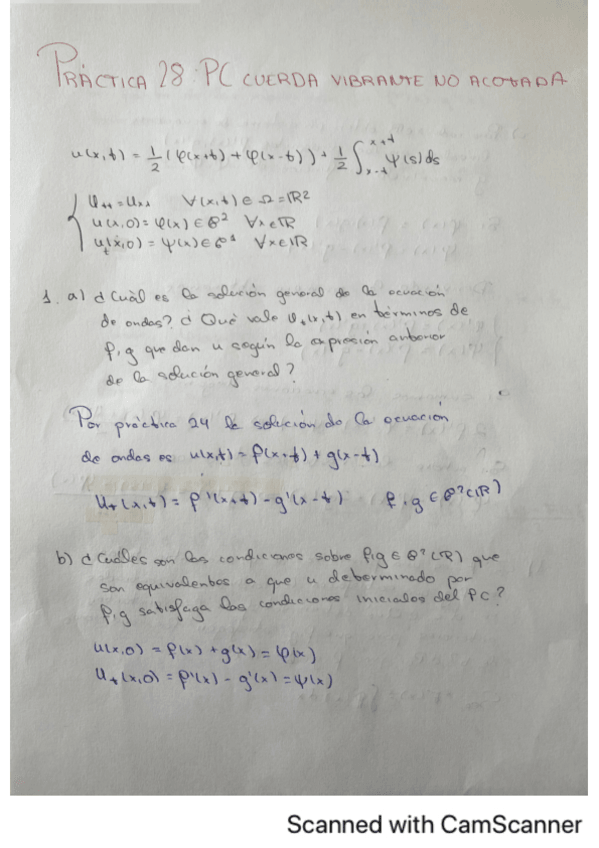 PRÁCTICA 28: PC CUERDA VIBRANTE NO ACOTADA
u(x,t) = 1/2 (φ(x+t) + φ(x-t)) + 1/2 ∫_{x-t}^{x+t} ψ(s) ds
{ u_tt = u_xx ∀(x,t) ∈ Ω = ℝ²
u(x,0) = φ(x) ∈ C² ∀x ∈ ℝ
u_t(x,0) = ψ(x) ∈ C¹ ∀x ∈ ℝ
1. a) ¿Cuál es la solución general de la ecuación
de ondas? ¿Qué vale u_t(x,t) en términos de
f,g que dan u según la expresión anterior
de la solución general?
Por práctica 24 la solución de la ecuación
de ondas es u(x,t) = f(x+t) + g(x-t)
u_t(x,t) = f'(x+t) - g'(x-t) f,g ∈ C²(ℝ)
b) ¿Cuáles son las condiciones sobre f,g ∈ C²(ℝ) que
son equivalentes a que u determinado por
f,g satisfaga las condiciones iniciales del PC?
u(x,0) = f(x) + g(x) = φ(x)
u_t(x,0) = f'(x) - g'(x) = ψ(x)
Scanned with CamScanner